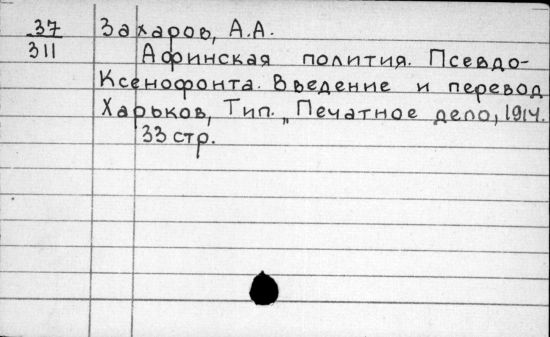 37 Захаров, А.А.
311 Афинская полития. Псевдо-
Ксенофонта. Введение и перевод
Харьков, Тип. „Печатное дело, 1914.
33 стр.